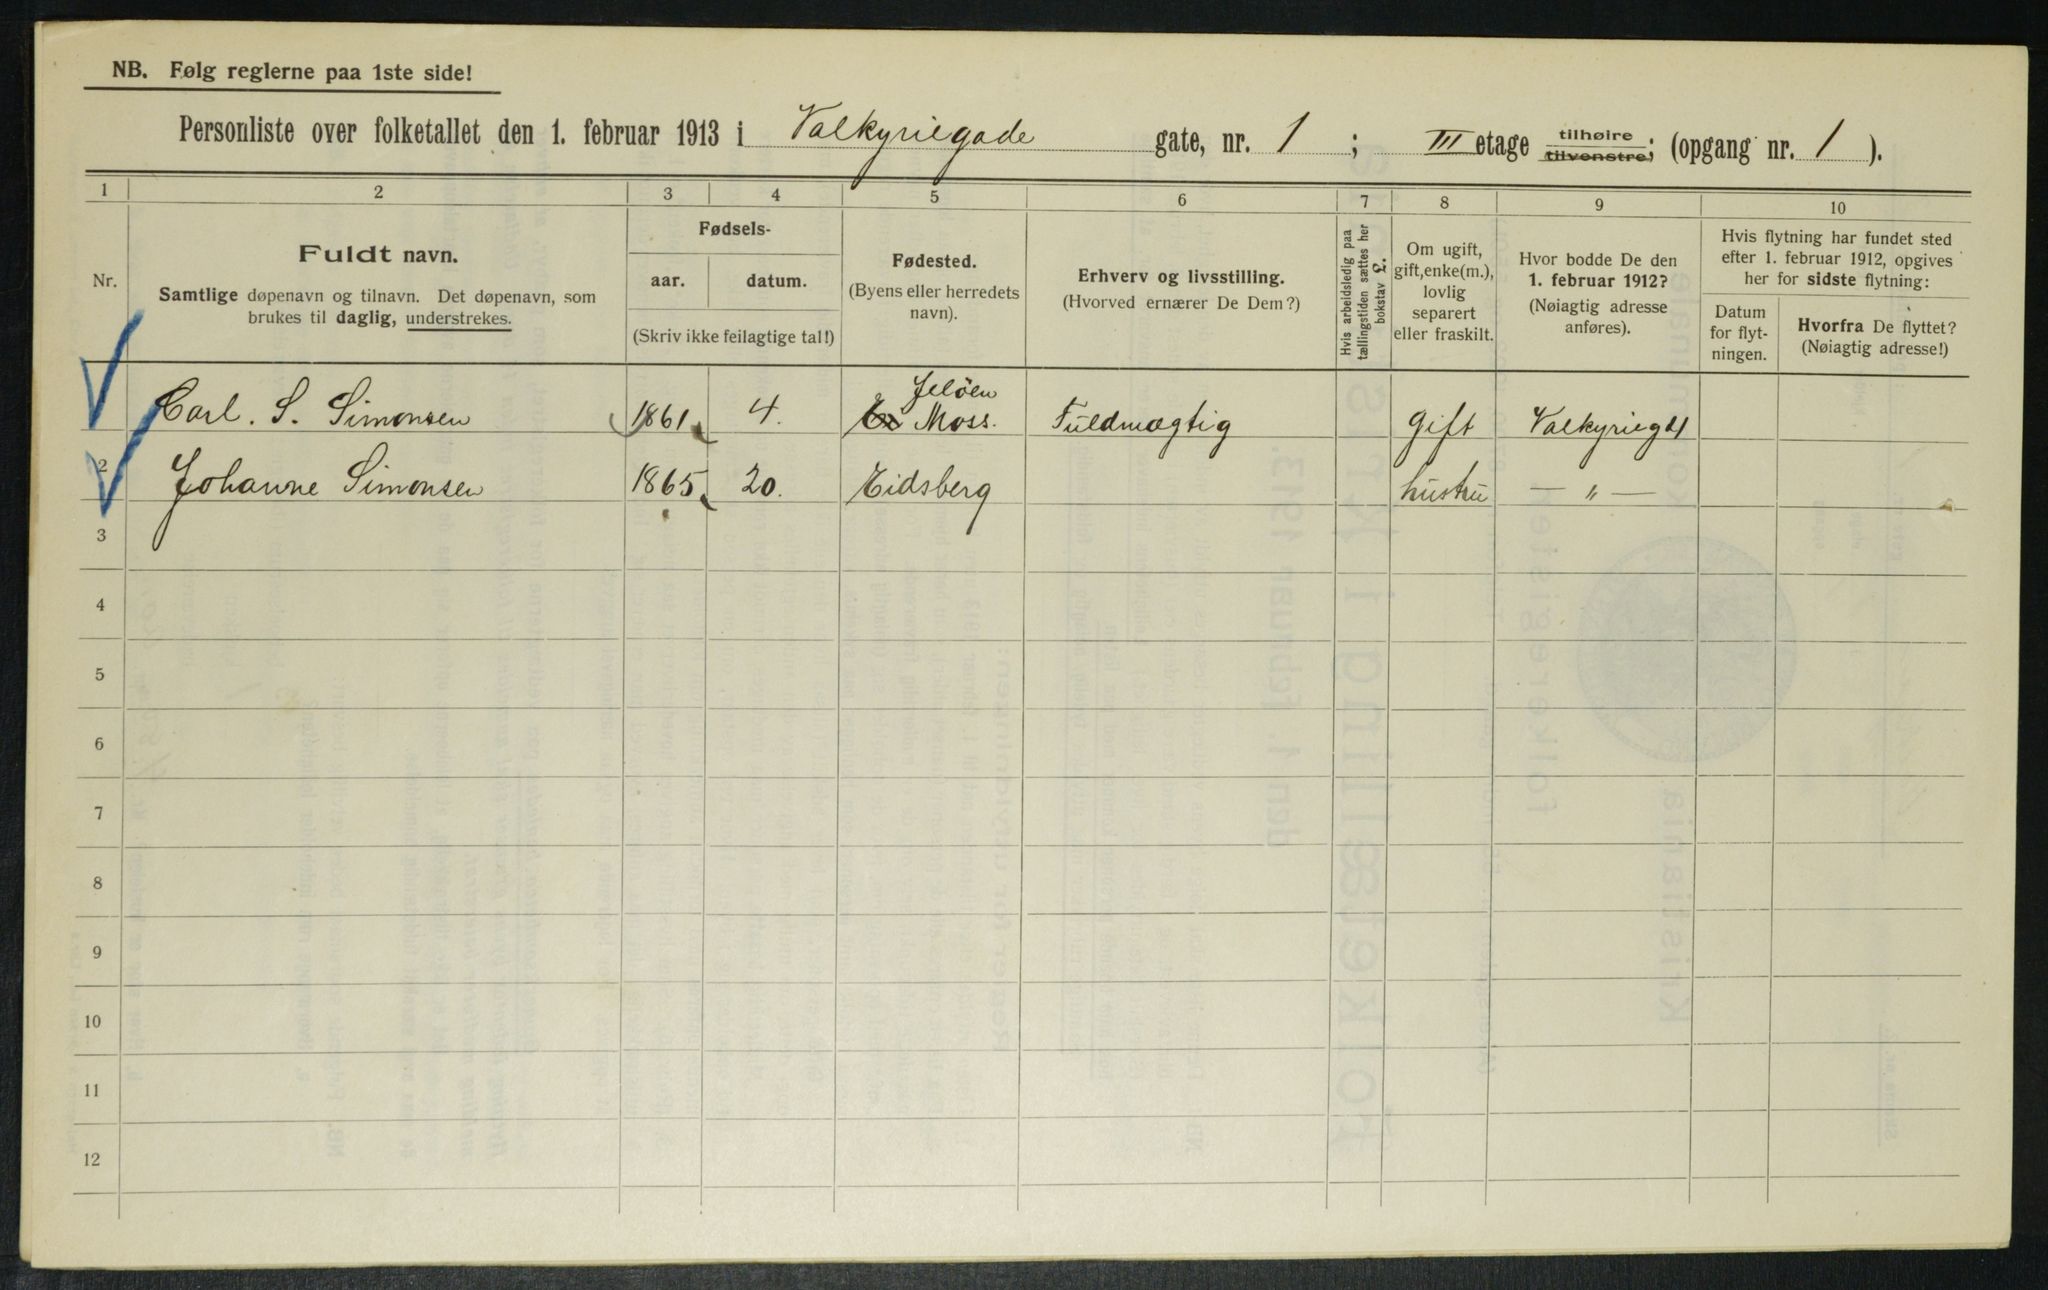 NB. Følg reglerne paa 1ste side!
Personliste over folketallet den 1. februar 1913 i Valkyriegade gate, nr. 1 ; III etage tilhøire tilvenstre; (opgang nr. 1 ).
1 2 3 4 5 6 7 8 9 10
Nr.
Fuldt navn.
Samtlige døpenavn og tilnavn. Det døpenavn, som
brukes til daglig, understrekes.
Fødsels-
aar. datum.
(Skriv ikke feilagtige tal!)
Fødested.
(Byens eller herredets
navn).
Erhverv og livsstilling.
(Hvorved ernærer De Dem?)
Hvis arbeidsledig paa
tællingstiden sættes her
bokstav L.
Om ugift,
gift, enke(m.),
lovlig
separert
eller fraskilt.
Hvor bodde De den
1. februar 1912?
(Nøiagtig adresse
anføres).
Hvis flytning har fundet sted
efter 1. februar 1912, opgives
her for sidste flytning:
Datum
for flyt-
ningen.
Hvorfra De flyttet?
(Nøiagtig adresse!)
Jeløen
Carl. S. Simonsen 1861 4. Moss. Fuldmægtig gift Valkyrieg 1
2 Johanne Simonsen 1865 20. Eidsberg hustru — " —
3
4
5
6
7
8
9
10
11
12